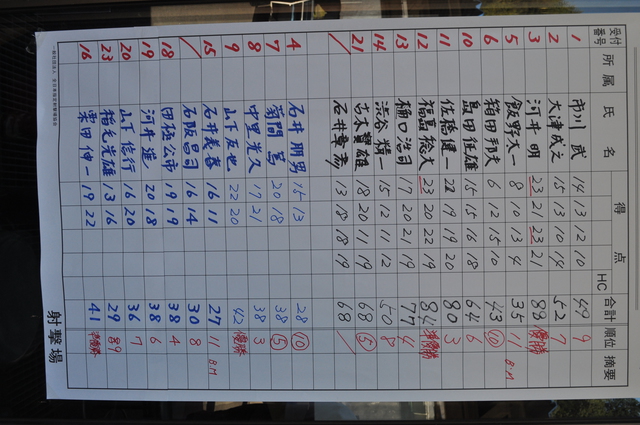 受付番号 所属 氏名 得点 HC 合計 順位 摘要
1 市川 武 14 13 12 10 49 9
2 大津成文 15 13 10 14 52 7
3 河井 明 23 21 23 21 88 優勝
5 飯野太一 8 10 13 4 35 11 B.M
6 稲田邦夫 6 12 15 10 43 10
10 島田征雄 15 15 16 18 64 6
11 佐橋健一 22 19 19 20 80 3
12 福島 夫 23 20 22 19 84 準優勝
13 樋口浩司 17 20 21 19 77 4
14 渋谷 一 15 12 11 12 50 8
21 古本豊雄 18 20 11 19 68 5
/ 石井 13 18 18 19 68 /
4 石井朋男 15 13 28 10
7 菊間 20 18 38 5
8 中里光久 17 21 38 3
9 山下友也 22 20 42 優勝
15 石井義春 16 11 27 11 B.M
/ 石坂昌司 16 14 30 8
18 田極公市 19 19 38 4
19 河井 進 20 18 38 6
20 山下信行 16 20 36 7
23 光雄 13 16 29 89
16 栗田伸一 19 22 41 準優勝
射撃場